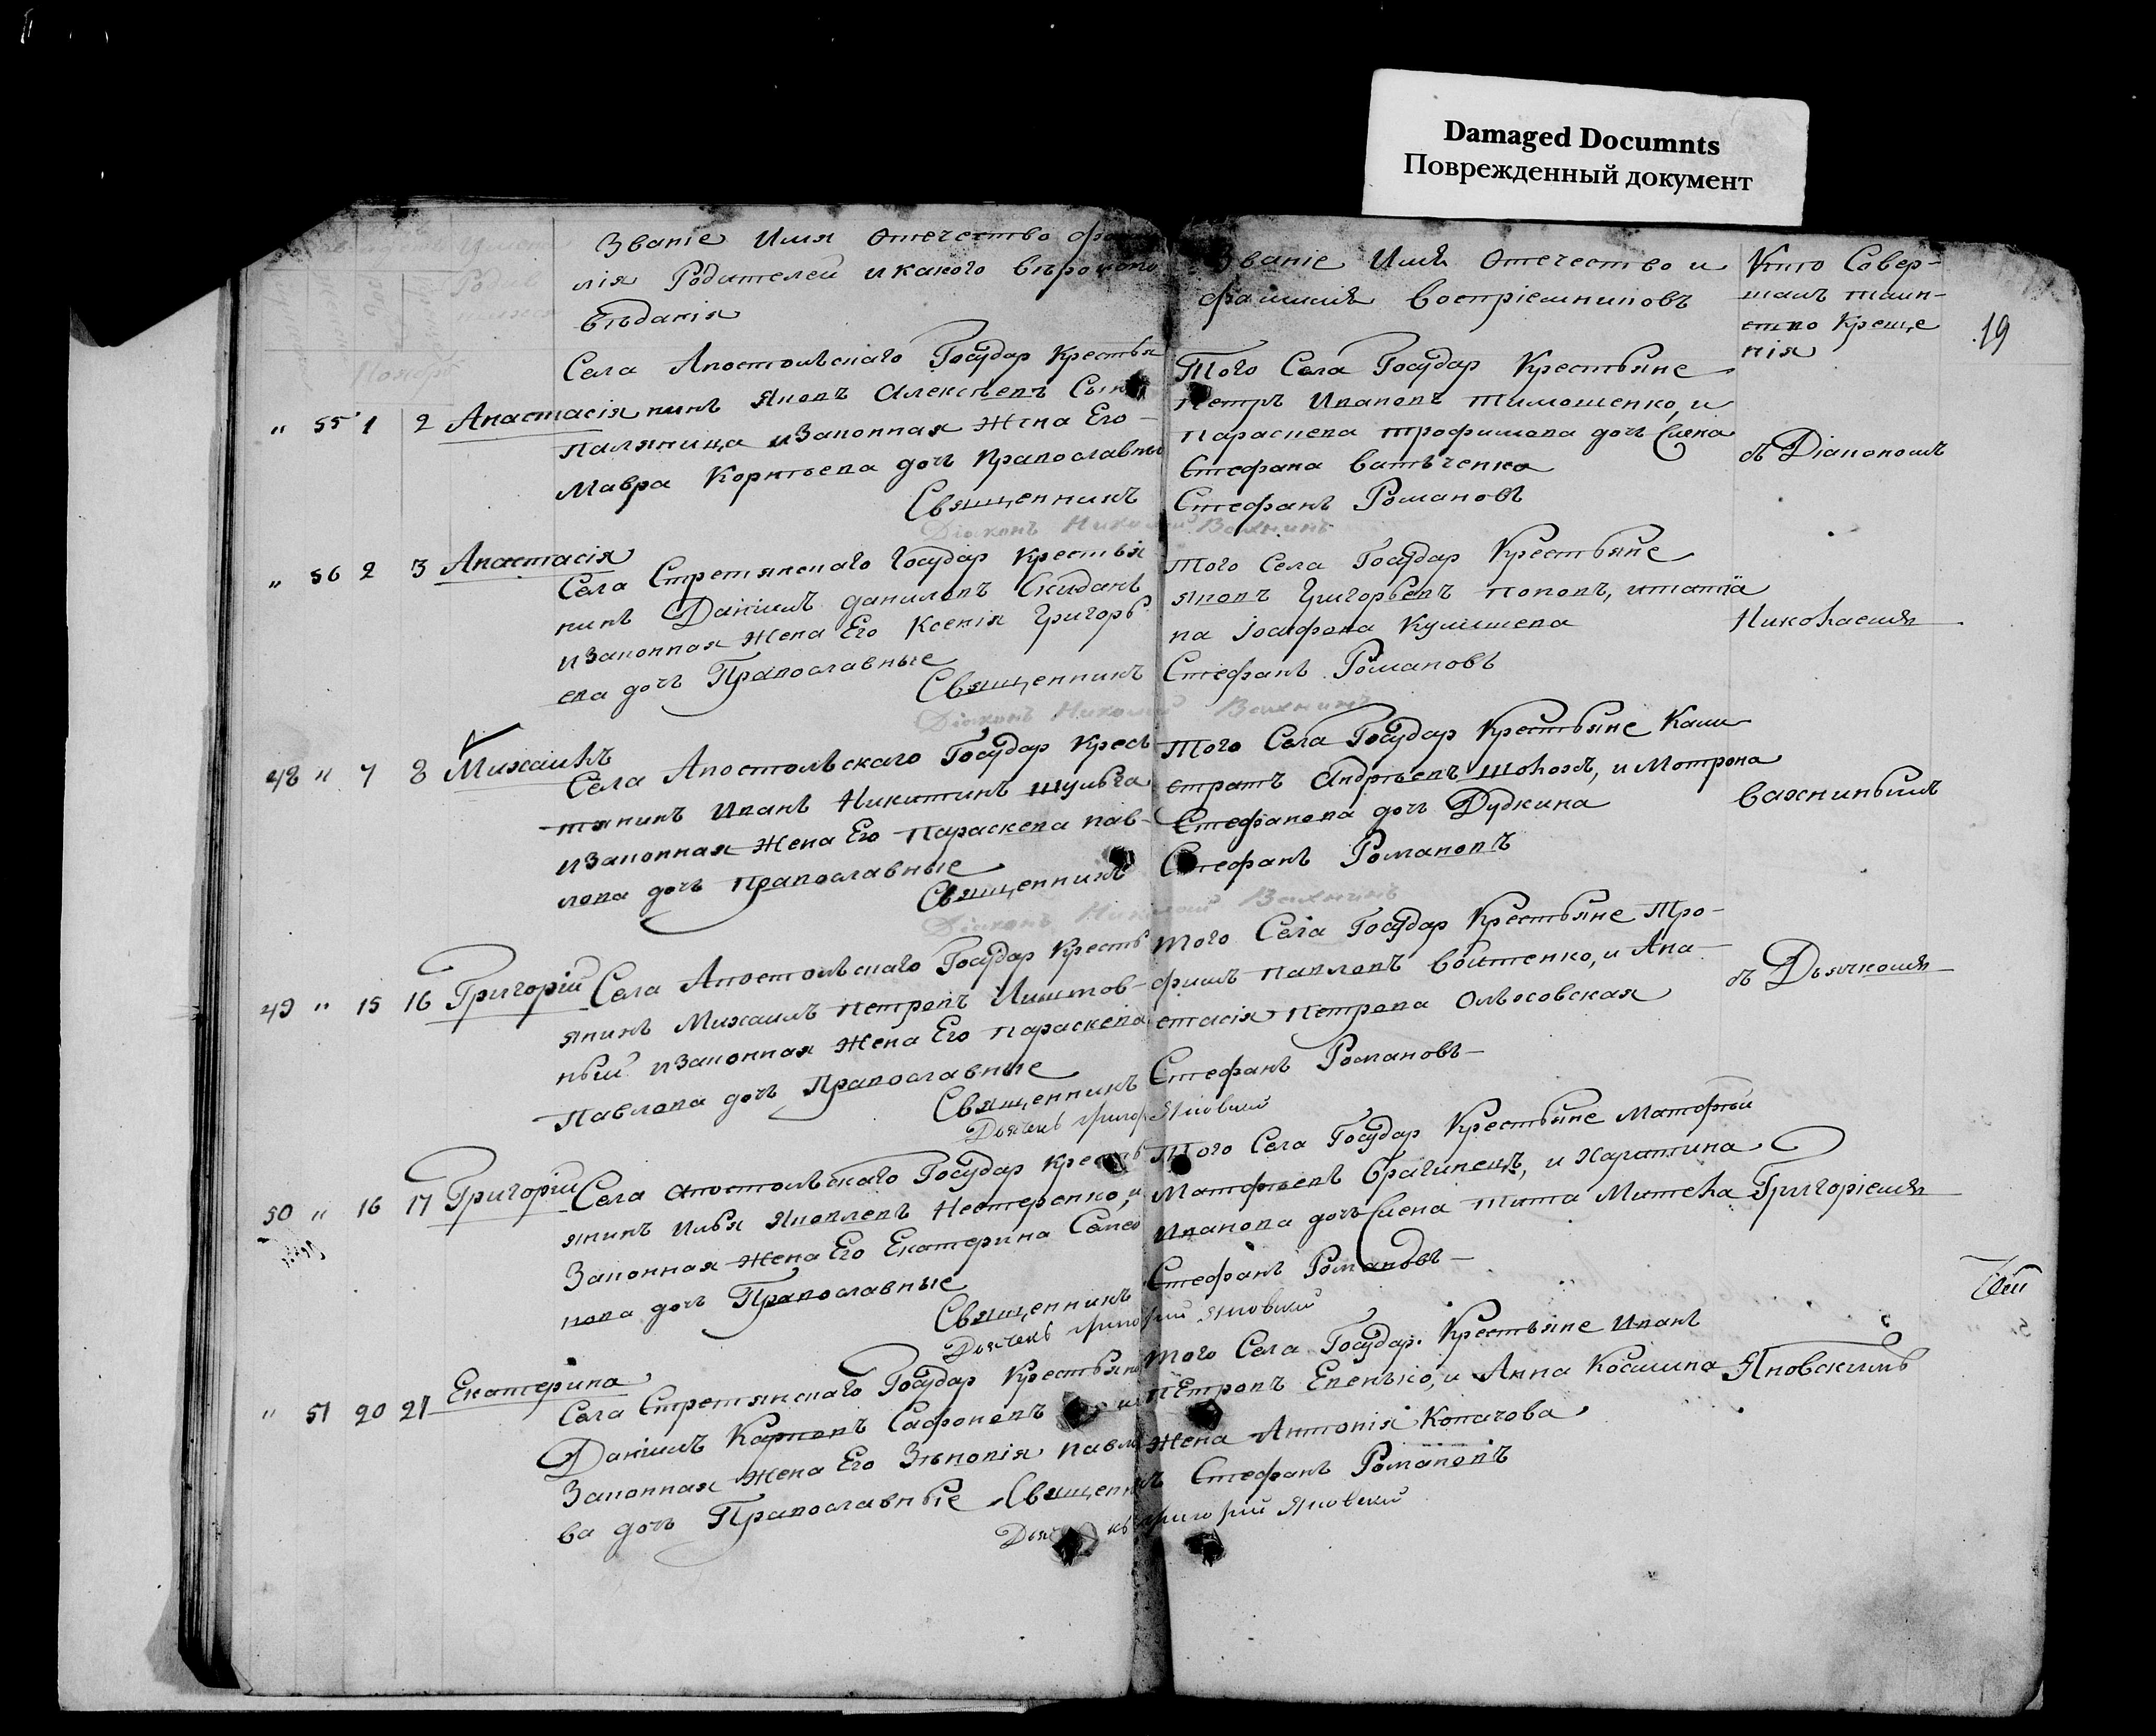 Damaged Documnts
Поврежденный документ
Званіе Имя Отечество фами
лія Родителей и какого вѣроиспо
вѣданія
Званіе Имя Отечество и
фамилія Воспріемниковъ
Кто Совер-
шалъ таин-
ство Креще
нія
19
Ноябрь
" 55 1 2 Анастасія
Села Апостольскаго Государ Крестья
нинъ Яковъ Алексѣевъ Сынъ
Паляница и Законная Жена Его
Мавра Корнѣева дочь Православные
Священникъ Стефанъ Романовъ
Діаконъ Николай Вахнинъ
Того Села Государ Крестьяне
Петръ Ивановъ Тимошенко, и
Параскева Трофимова дочь
Стефана
съ Діакономъ
" 56 2 3 Анастасія
Села Стретянскаго Государ Крестья
нинъ Даніилъ Даниловъ Скиданъ
и Законная Жена Его Ксенія Григорь
ева дочь Православные
Священникъ Стефанъ Романовъ
Діаконъ Николай Вахнинъ
Того Села Государ Крестьяне
Яковъ Григорьевъ Поповъ, и Татія
на Іосифова
Николаемъ
48 " 7 8 Михаилъ
Села Апостольскаго Государ Кресть
янинъ Иванъ Никитинъ Шульга
и Законная Жена Его Параскева Пав-
лова дочь Православные
Священникъ Стефанъ Романовъ
Діаконъ Николай Вахнинъ
Того Села Государ Крестьяне Кали
стратъ Андрѣевъ и Мотрона
Стефанова дочь Дудкина
Вахнинымъ
49 " 15 16 Григорій
Села Апостольскаго Государ Кресть
янинъ Михаилъ Петровъ
ный и Законная Жена Его Параскева
Павлова дочь Православные
Священникъ Стефанъ Романовъ
Дьячекъ Григорій Яновскій
Того Села Государ Крестьяне Тро-
фимъ Павловъ Войтенко, и Ана-
стасія Петрова Ольховская
съ Дьячкомъ
50 " 16 17 Григорій
Села Апостольскаго Государ Кресть
янинъ Илья Яковлевъ Нестеренко, и
Законная Жена Его Екатерина Семе
нова дочь Православные
Священникъ Стефанъ Романовъ
Дьячекъ Григорій Яновскій
Того Села Государ Крестьяне Матфѣй
Матфѣевъ Брагинецъ, и Харитина
Иванова дочь Тита
Григоріемъ
" 51 20 21 Екатерина
Села Стретянскаго Государ Крестьянинъ
Даніилъ Карповъ Сафоновъ и
Законная Жена Его Зѣновія Павло
ва дочь Православные Священникъ Стефанъ Романовъ
Дьячекъ Григорій Яновскій
Того Села Государ. Крестьяне Иванъ
Петровъ и Анна Косьмина
Жена Антонія Копачова
Яновскимъ